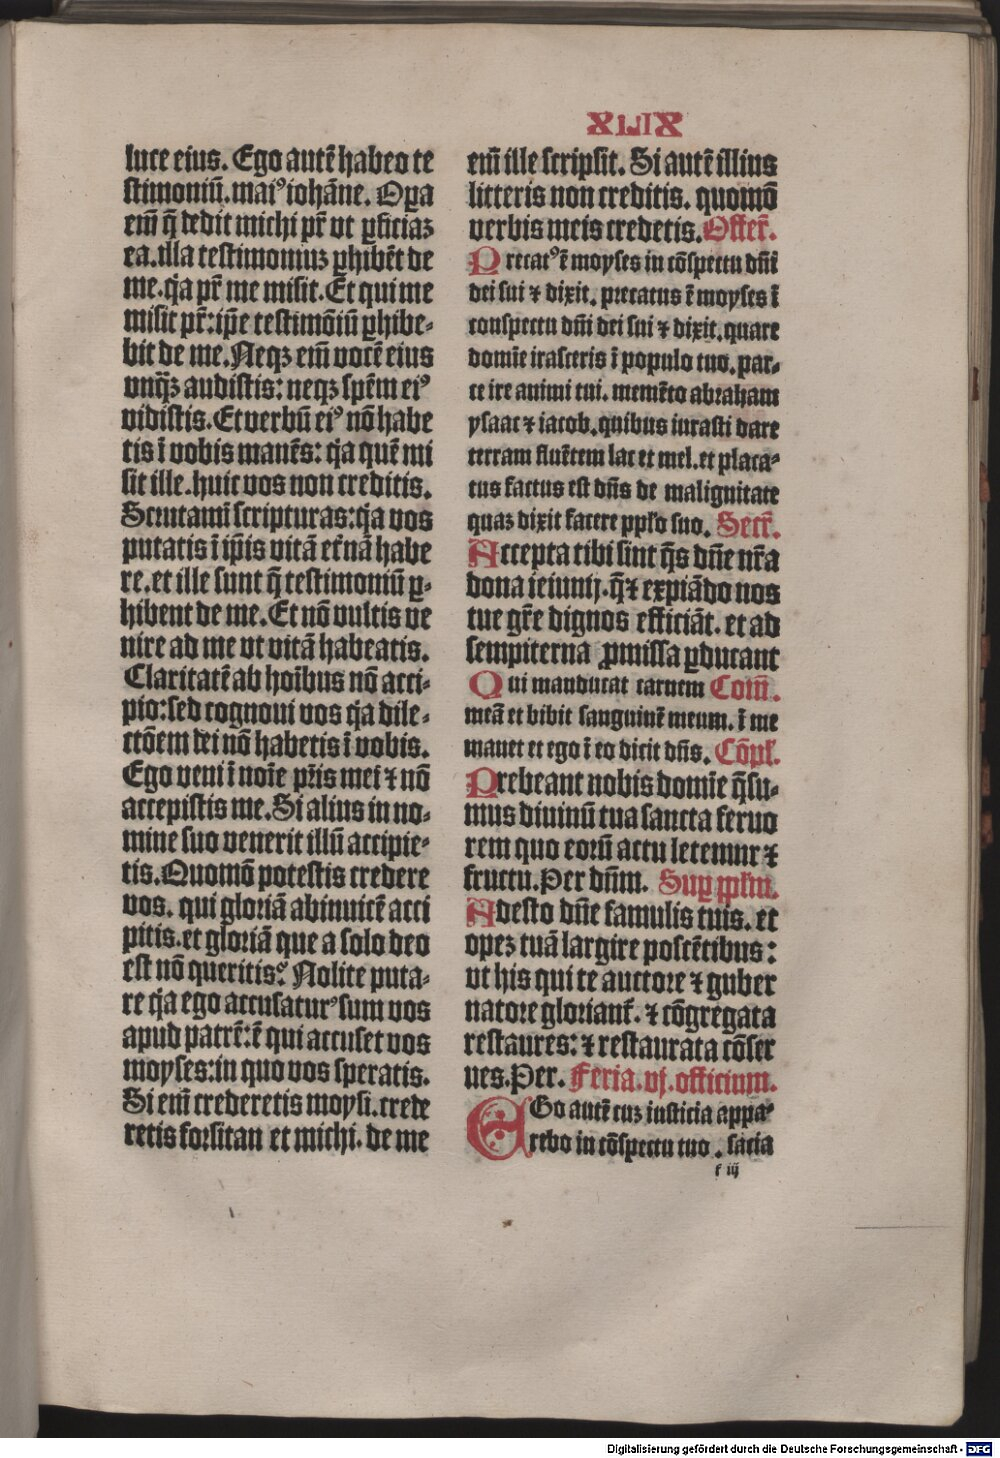 XLIX
luce eius. Ego autē habeo te
stimoniū. maiꝰ iohāne. Oꝑa
em̄ q̄ dedit michi pr̄ vt ꝑficiaꝫ
ea. illa testimoniuꝫ ꝑhibēt de
me. qꝛ pr̄ me misit. Et qui me
misit pr̄: ip̄e testimōiū ꝑhibe-
bit de me. Neqꝫ em̄ vocē eius
vnqᷓꝫ audistis: neqꝫ spēm eiꝰ
vidistis. Et verbū eiꝰ nō habe
tis ī vobis manēs: qꝛ quē mi
sit ille. huic vos non creditis.
Scrutamī scripturas: qꝛ vos
putatis ī ip̄is vitā et̄nā habe
re. et ille sunt q̄ testimoniū ꝑ-
hibent de me. Et nō vultis ve
nire ad me vt vitā habeatis.
Claritatē ab hoībus nō acci-
pio: sed cognoui vos qꝛ dile-
ctōem dei nō habetis ī vobis.
Ego veni ī noīe pr̄is mei ⁊ nō
accepistis me. Si alius in no-
mine suo venerit illū accipie-
tis. Quomō potestis credere
vos. qui gloriā abinuicē acci
pitis. et gloriā que a solo deo
est nō queritis? Nolite puta-
re qꝛ ego accusaturꝰ sum vos
apud patrē: ē qui accuset vos
moyses: in quo vos speratis.
Si em̄ crederetis moysi. crede
retis forsitan et michi. de me
em̄ ille scripsit. Si autē illius
litteris non creditis. quomō
verbis meis credetis. Offer̄.
Precatꝰ ē moyses in cōspectu dn̄i
dei sui ⁊ dixit. precatus ē moyses ī
conspectu dn̄i dei sui ⁊ dixit. quare
domīe irasceris ī populo tuo. par-
ce ire animi tui. memēto abraham
ysaac ⁊ iacob. quibus iurasti dare
terram fluētem lac et mel. et placa-
tus factus est dn̄s de malignitate
quaꝫ dixit facere ppl̄o suo. Secr̄.
Accepta tibi sint q̄s dn̄e nr̄a
dona ieiunij. q̄ ⁊ expiādo nos
tue gr̄e dignos efficiāt. et ad
sempiterna ꝓmissa ꝑducant
Qui manducat carnem Com̄.
meā et bibit sanguinē meum. ī me
manet et ego ī eo dicit dn̄s. Cōpl̄.
Prebeant nobis domīe q̄su-
mus diuinū tua sancta feruo
rem quo eorū actu letemur ⁊
fructu. Per dn̄m. Suꝑ ppl̄m.
Adesto dn̄e famulis tuis. et
opeꝫ tuā largire poscētibus:
vt his qui te auctore ⁊ guber
natore gloriant᷑. ⁊ cōgregata
restaures: ⁊ restaurata cōser
ues. Per. Feria. vj. officium.
EGo autē cuꝫ iusticia appa-
rebo in cōspectu tuo. sacia
f iij
Digitalisierung gefördert durch die Deutsche Forschungsgemeinschaft - DFG